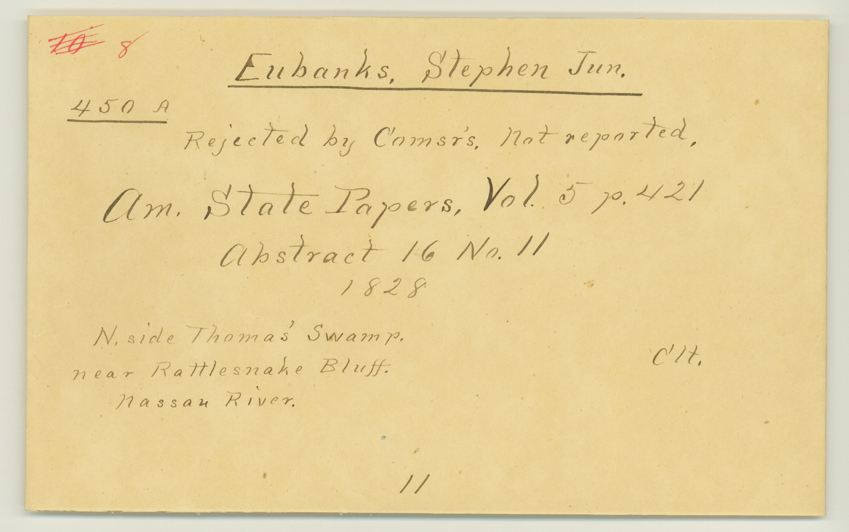 10 8
Eubanks, Stephen Jun.
450 A
Rejected by Comsr's. Not reported.
Am. State Papers, Vol. 5 p. 421
Abstract 16 No. 11
1828
N. side Thomas' Swamp.
near Rattlesnake Bluff.
Nassau River.
Clt.
11